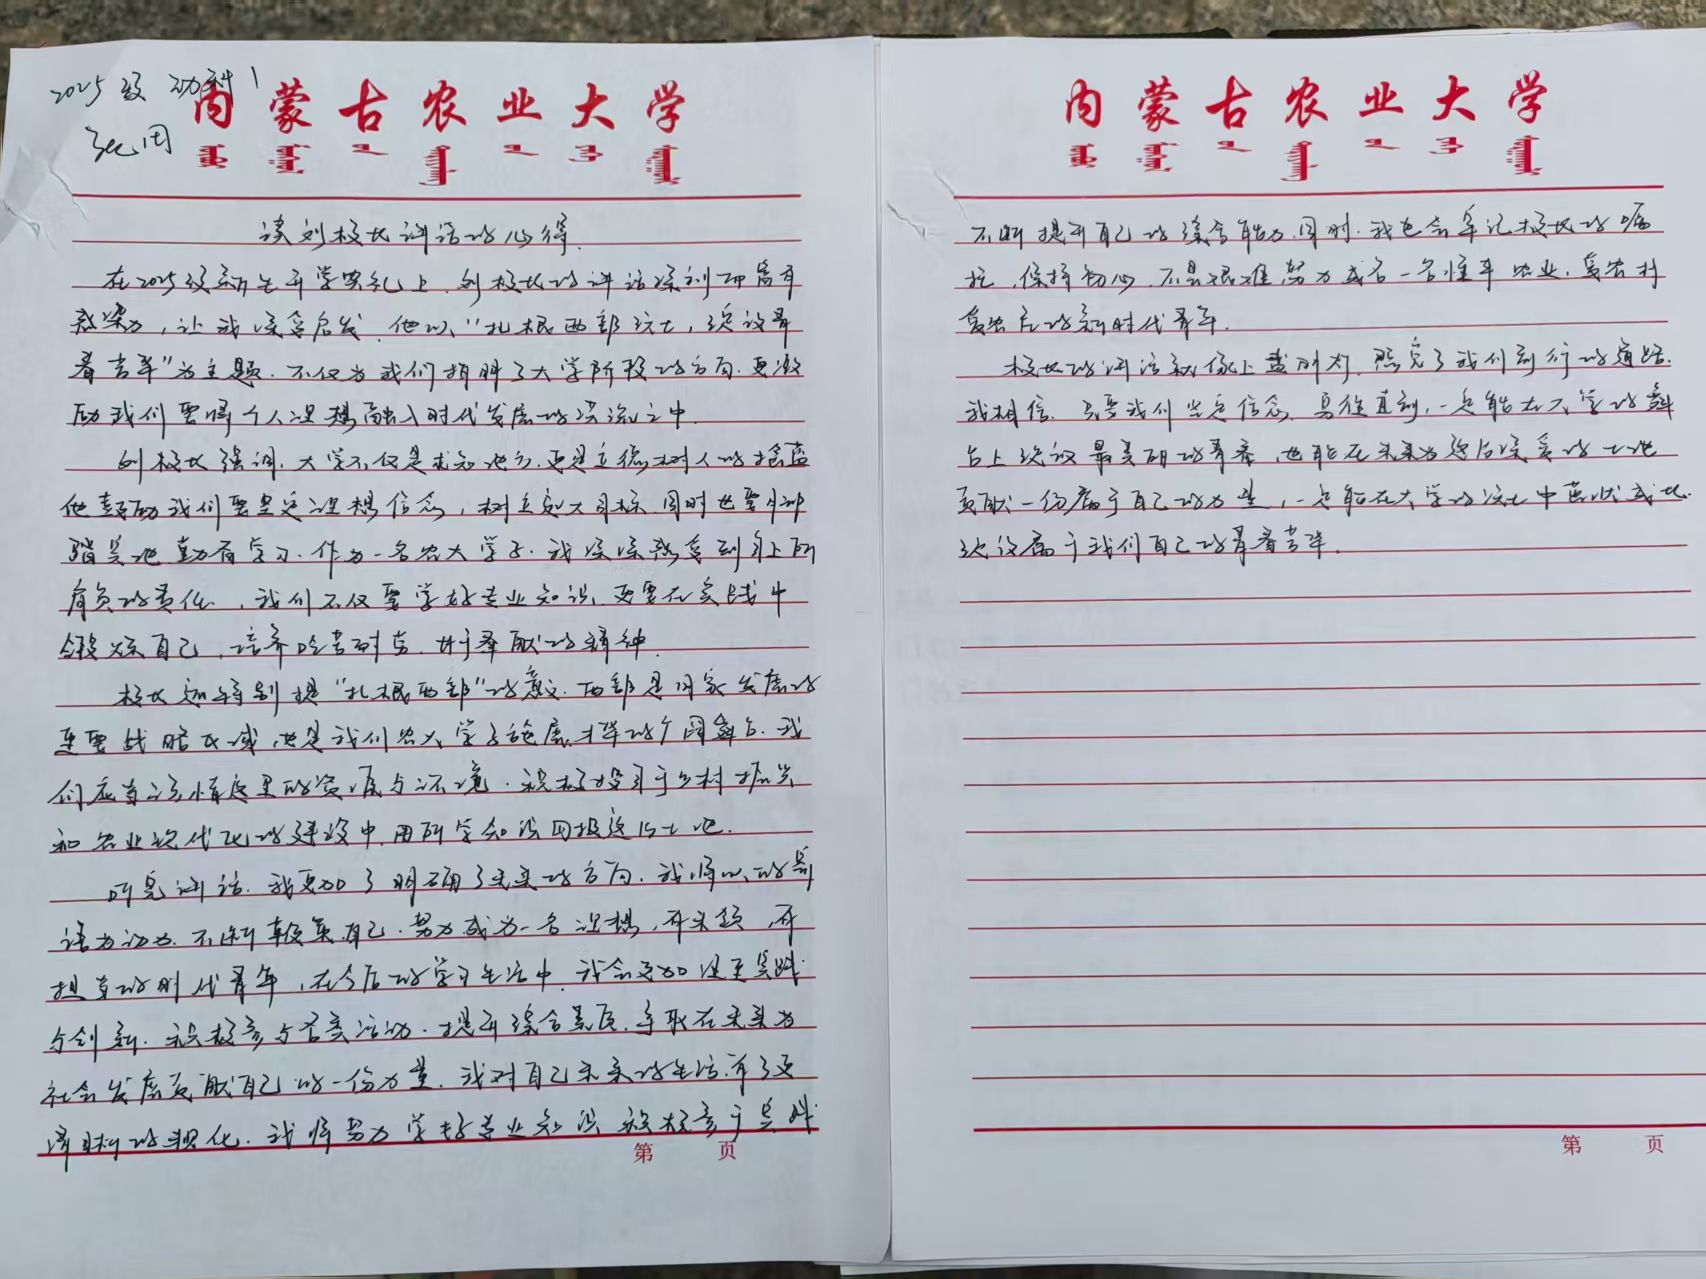 2025级 动科1
内蒙古农业大学
读刘校长讲话的心得
在2025级新生开学典礼上,刘校长的讲话深刻而富有
感染力,让我深受启发。他以“扎根西部沃土,绽放青
春芳华”为主题,不仅为我们指明了大学阶段的方向,更激
励我们要将个人理想融入时代发展的洪流之中。
刘校长强调,大学不仅是求知地方,更是立德树人的摇篮
他鼓励我们要坚定理想信念,树立远大目标,同时也要脚
踏实地勤奋学习。作为一名农大学子,我深深感受到身上所
肩负的责任,我们不仅要学好专业知识,更要在实践中
锻炼自己,培养吃苦耐劳,甘于奉献的精神。
校长还特别提“扎根西部”的意义。西部是国家发展的
重要战略区域,也是我们农大学子施展才华的广阔舞台。我
们应当珍惜这里的资源与环境,积极投身于乡村振兴
和农业现代化的建设中,用所学知识回报这片土地。
听完讲话,我更加了明确了未来的方向。我将以
话为动力,不断 自己,努力成为一名有理想,有本领,有
担当的时代青年,在今后的学习生活中,我会更加注重实践
与创新,积极参与各类活动,提升综合素质,争取在未来为
社会发展贡献自己的一份力量,我对自己未来的生活有了更
清晰的规化,我将努力学好专业知识,积极参于实践
第 页
内蒙古农业大学
不断提升自己的综合能力,同时,我也会牢记校长的嘱
托,保持初心,不畏艰难,努力成为一名懂农业,爱农村
爱农民的新时代青年。
校长的讲话就像上盏明灯,照亮了我们前行的道路。
我相信,只要我们坚定信念,勇往直前,一定能在大学的舞
台上绽放最美丽的青春,也能在未来为 的土地
贡献一份属于自己的力量,一定能在大学的沃土中茁壮成长
绽放属于我们自己的青春芳华。
第 页